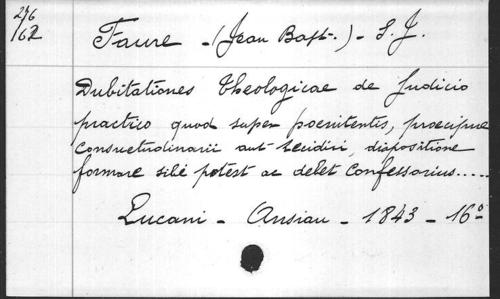 276
162
Faure - (Jean Bapt.) - S. J.
Dubitationes theologicae de Judicio
practico quod super poenitentis, proecipue
consuetudinarii aut recidivi, dispositione
formare sibi potest ac debet Confessarius.....
Lucani - Ansiau - 1843 - 16º